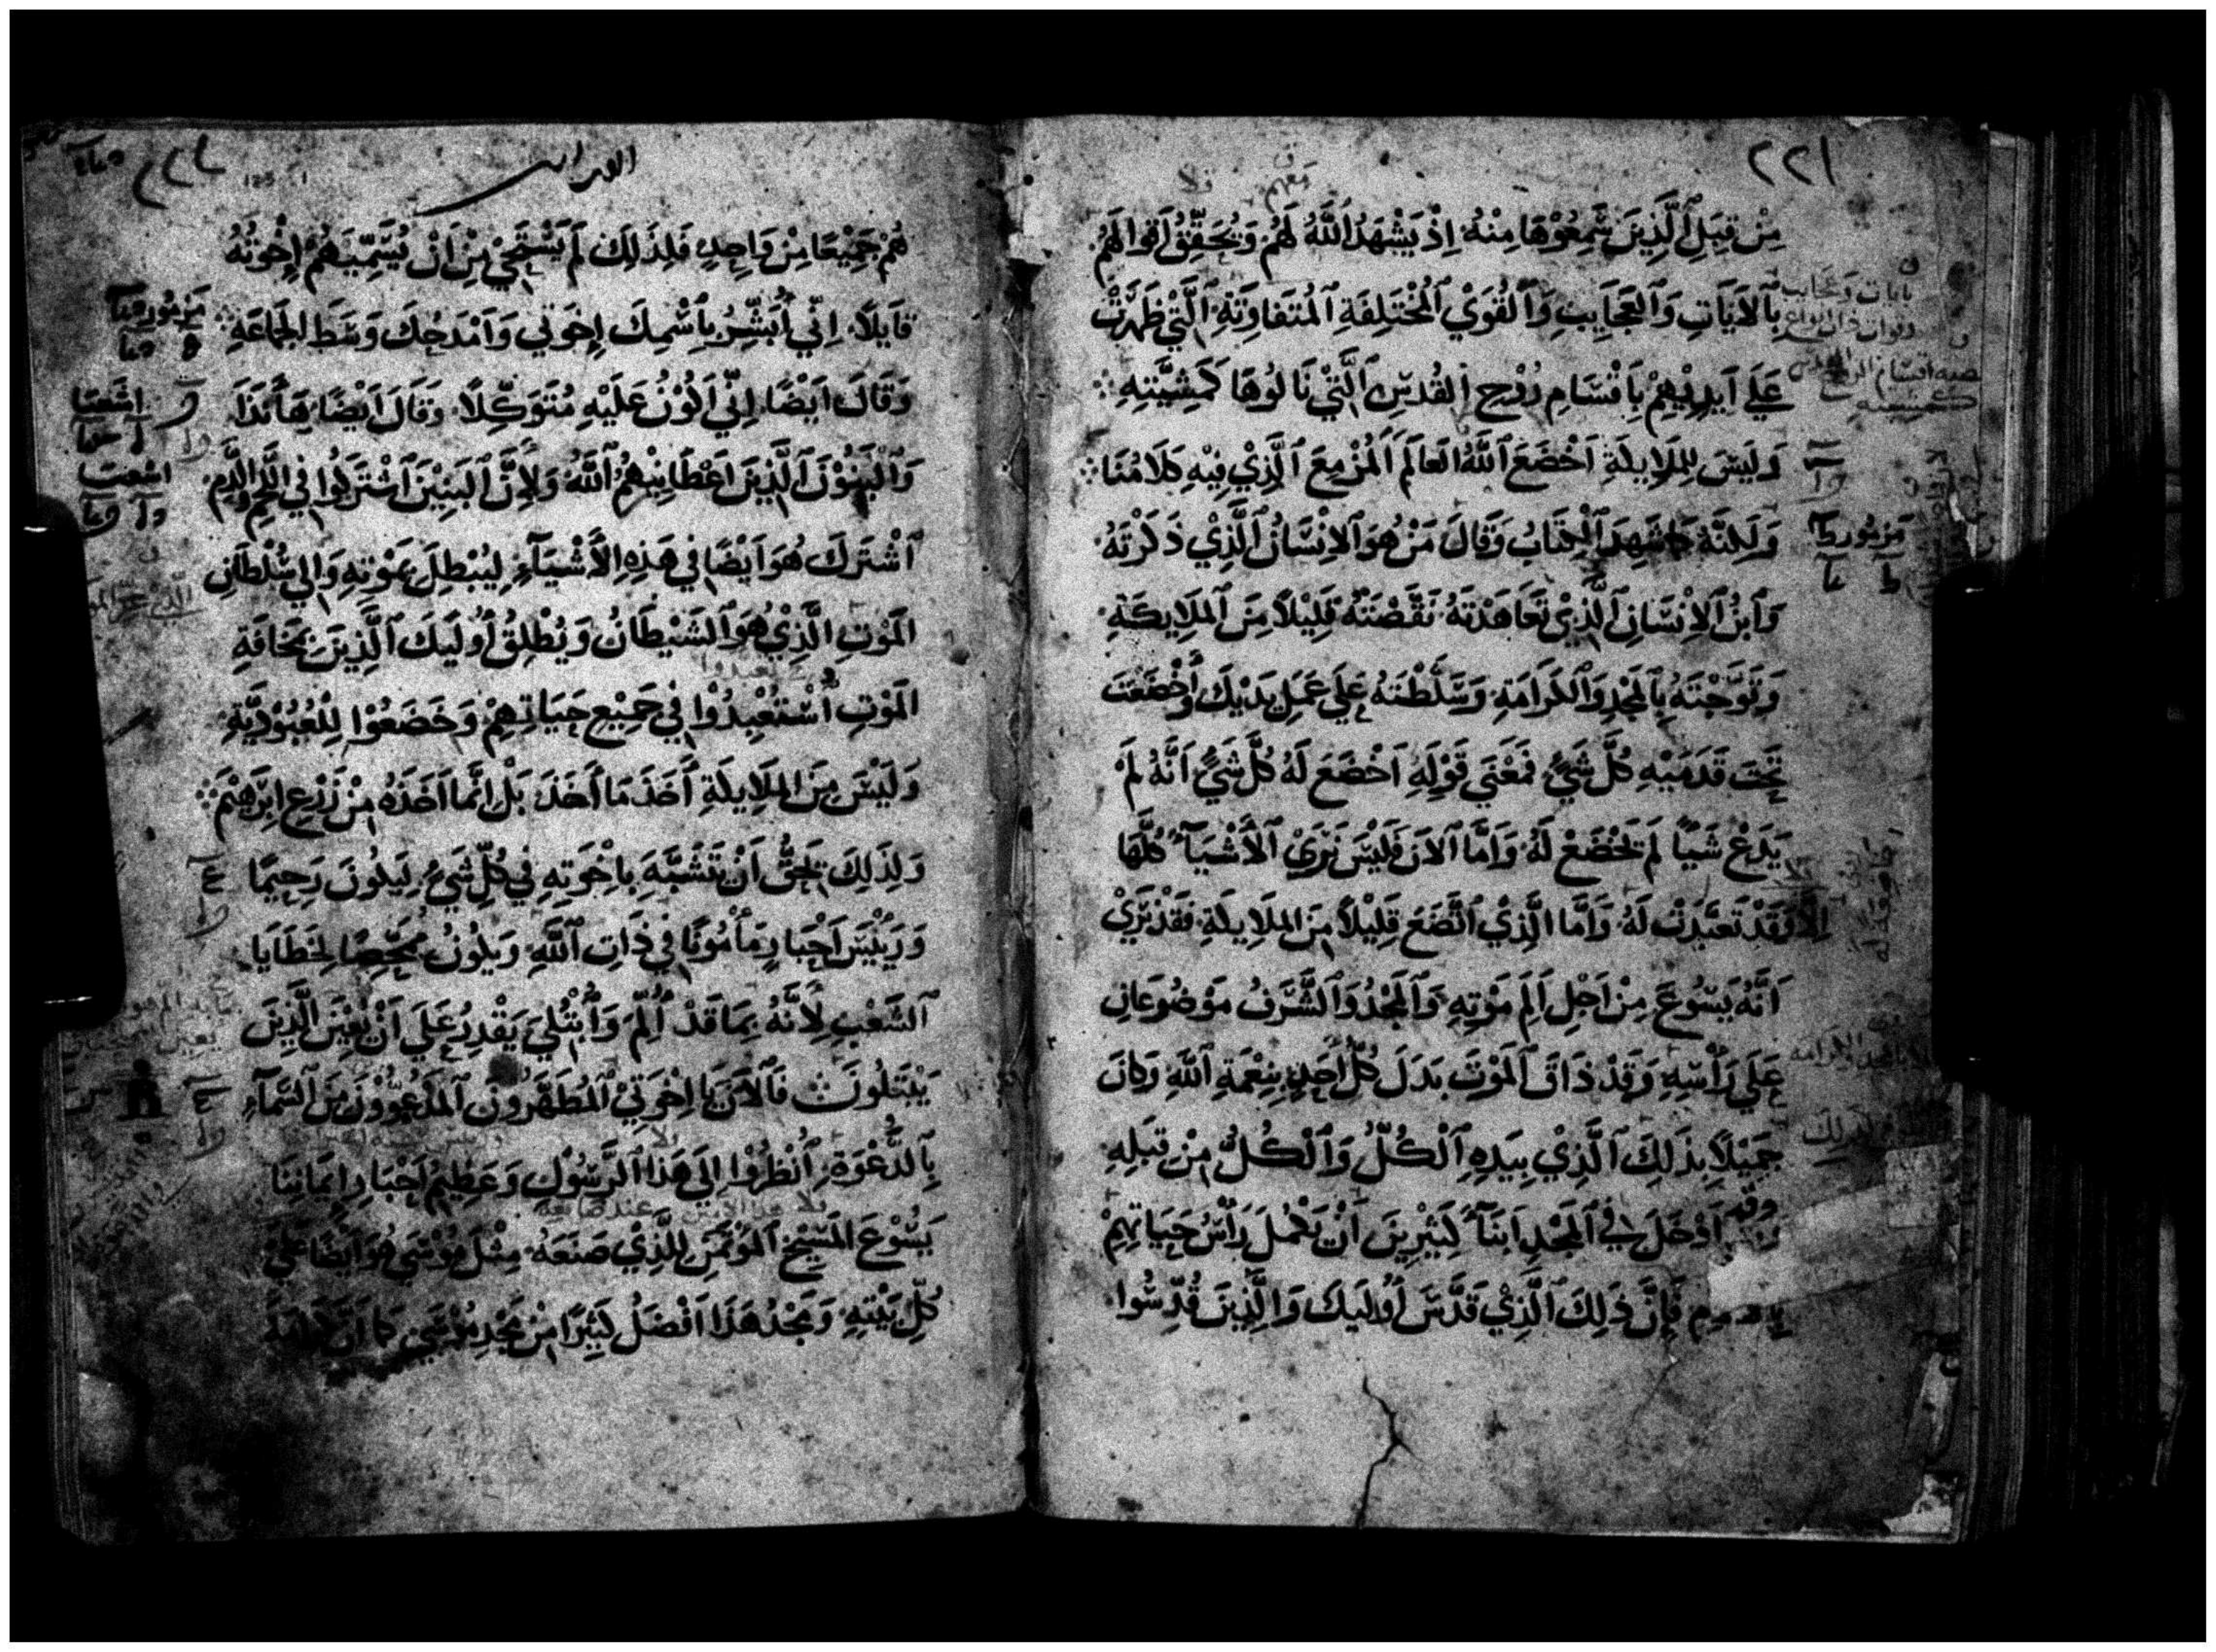 ٢٢١
مِنْ قِبَلِ ٱلَّذِينَ سَّمِعُوْهَا مِنْهُ. اِذْ يَشْهَدُ ٱللَّهُ لَهُم وَتُحَقِّقُ اَقوالَهُم
بِٱلاَيَاتِ وَٱلعَجَايِبِ وَٱلقُوَيْ ٱلمُخْتَلِفَةِ ٱلمُتَفَاوِتَةِ. ٱلَّتِيْ ظَهَرَتْ
عَلَي اَيدِيْهِمْ بِاَقْسَامِ رُوْحِ ٱلقُدسِ ٱلَّتِيْ نَالُوهَا كَمَشِيَّتِهِ
وَلَيسَ لِلمَلَايِكَةِ اَخْضَعَ ٱللَّهُ العَالَمَ ٱلمُزْمِعَ ٱلَّذِيْ فِيْهِ كَلَامُنَا
وَلَكِنَّهُ شَهِدَ ٱلْكِتَابُ وَقَالَ مَنْ هُوَ ٱلاِنْسَانُ ٱلَّذِيْ ذَكَرْتَهُ.
وَٱبنُ ٱلاِنْسَانِ ٱلَّذِيْ تَعَاهَدْتَهُ نَقَّصْتَهُ قَلِيْلاً مِنَ ٱلمَلَايِكَةِ.
وَتَوَّجْتَهُ بِٱلمَجْدِ وَٱلكَرَامَةِ. وَسَلَّطْتَهُ عَلَي عَمَلِ يَدَيْكَ وَأَخْضَعْتَ
تَحْتَ قَدَمَيْهِ كُلَّ شَيٍْ فَمَعْنَي قَوْلِهِ اَخْضَعَ لَهُ كُلَّ شَيٍْ اَنَّهُ لَمْ
يَدَعْ شَيْاً لَم يَخْضَعْ لَهُ. وَاَمَّا ٱلاَنَ فَلَيْسَ نَرَيْ ٱلأَشْيَآَ كُلَّهَا
اِلَّا وَقَدْ تَعَبَّدَتْ لَهُ. وَاَمَّا الَّذِيْ ٱتَّضَعَ قَلِيْلاً مِنَ المَلَايِكَةِ. فَقَدْ نَرَيْ
اَنَّهُ يَسُوعَ مِنْ اَجْلِ اَلَمِ مَوْتِهِ وَٱلمَجْدُ وَٱلشَّرَفُ مَوْضُوعَانِ
عَلَي رَأْسِهِ. وَقَدْ ذَاقَ ٱلمَوْتَ بَدَلَ كُلِّ اَحَدٍ بِنِعْمَةِ ٱللَّهِ وَكَانَ
جَمِيْلاً بِذَلِكَ ٱلَّذِيْ بِيَدِهِ ٱلْكُلُّ وَٱلْكُلُّ مِنْ قِبَلِهِ.
وقد اَدْخَلَ فِي ٱلمَجْدِ اَبنَآً كَثِيْرِيْنَ اَنْ يَكْمُلَ رَأْسُ حَيَاتِهِمْ
فَاِنَّ ذَلِكَ ٱلَّذِيْ قَدَّسَ اُولَيِكَ وَٱلَّذِينَ قُدِّسُوا.
مزمور
العبرانيين
هُمْ جَمِيْعًا مِنْ وَاحِدٍ فَلِذَلِكَ لَمْ يَسْتَحِيْ مِنْ اَنْ يُسَمِّيَهُمْ اِخْوَتُهُ
قَايِلاً. اِنِّي اُبَشِّرُ بِاَسْمِكَ اِخْوَتي وَاَمْدَحُكَ وَسَط الجَمَاعَةِ
وَقَالَ اَيْضًا. اِنِّي اَكُوْنُ عَلَيْهِ مُتَوَكِّلاً. وَقَالَ اَيْضًا. هَأَنَذَا
وَٱلْبَنُوْنَ ٱلَّذِيْنَ اَعْطَانِيْهُمُ ٱللَّهُ وَلِأَنَّ ٱلبَنِيْنَ ٱشْتَرَكُوا فِي اللَّحْمِ وَالدَّمِ.
ٱشْتَرَكَ هُوَ اَيْضًا فِي هَذِهِ الأَشْيَآءِ. لِيُبْطِلَ بِمَوْتِهِ وَالِي سُلْطَانِ
المَوْتِ الَّذِيْ هُوَ ٱلشَّيْطَانُ وَيُطْلِقُ اُولَيِكَ ٱلَّذِيْنَ بِمَخَافَةِ
المَوْتِ ٱسْتُعْبِدُوْا فِي جَمِيْعِ حَيَاتِهِمْ وَخَضَعُوْا لِلْعُبُوْدِيَّةِ.
وَلَيْسَ مِنَ المَلَايِكَةِ أَخَذَ مَا أَخَذَ بَلْ اِنَّما اَخَذَهُ مِنْ زَرْعِ اِبْرَهِيْمَ
وَلِذَلِكَ يَحِقُّ اَنْ يَتَشَبَّهَ بِاِخْوَتِهِ فِي كُلِّ شَيْ. لِيَكُونَ رَحِيمًا
وَرَيِّيْسَ اَحْبَارٍ مَأْمُونًا فِي ذَاتِ ٱللَّهِ وَيَكُونُ مُمَحِّصًا لِخَطَايَا
ٱلشَّعْبِ لِأَنَّهُ بِمَا قَدْ أُلِمَ وَٱبْتُلِيَ يَقْدِرُ عَلَي اَنْ يُعِيْنَ الَّذِيْنَ
يُبْتَلُونَ فَٱلاَنَ يَا اِخْوَتِيْ ٱلمُطَهَّرُونَ ٱلمَدْعُوُّوْنَ مِنَ ٱلسَّمَآءِ
بِٱلدَّعْوَةِ. ٱنْظُرُوْا اِلَي هَذَا ٱلرَّسُولِ وَعَظِيْمِ اَحْبَارِ اِيْمَانِنَا
يَسُوْعَ المَسِيْحِ ٱلمُوْتَمَنِ لِلَّذِيْ صَنَعَهُ. مِثْلَ مُوْسَي هُوَ اَيْضًا عَلَيْ
كُلِّ بَيْتِهِ. وَمَجْدُ هَذَا اَفْضَلُ كَثِيْرًا مِنْ مَجْدِ مُوْسَي كما اَنَّ
مزمور
اشعيا
اشعيا